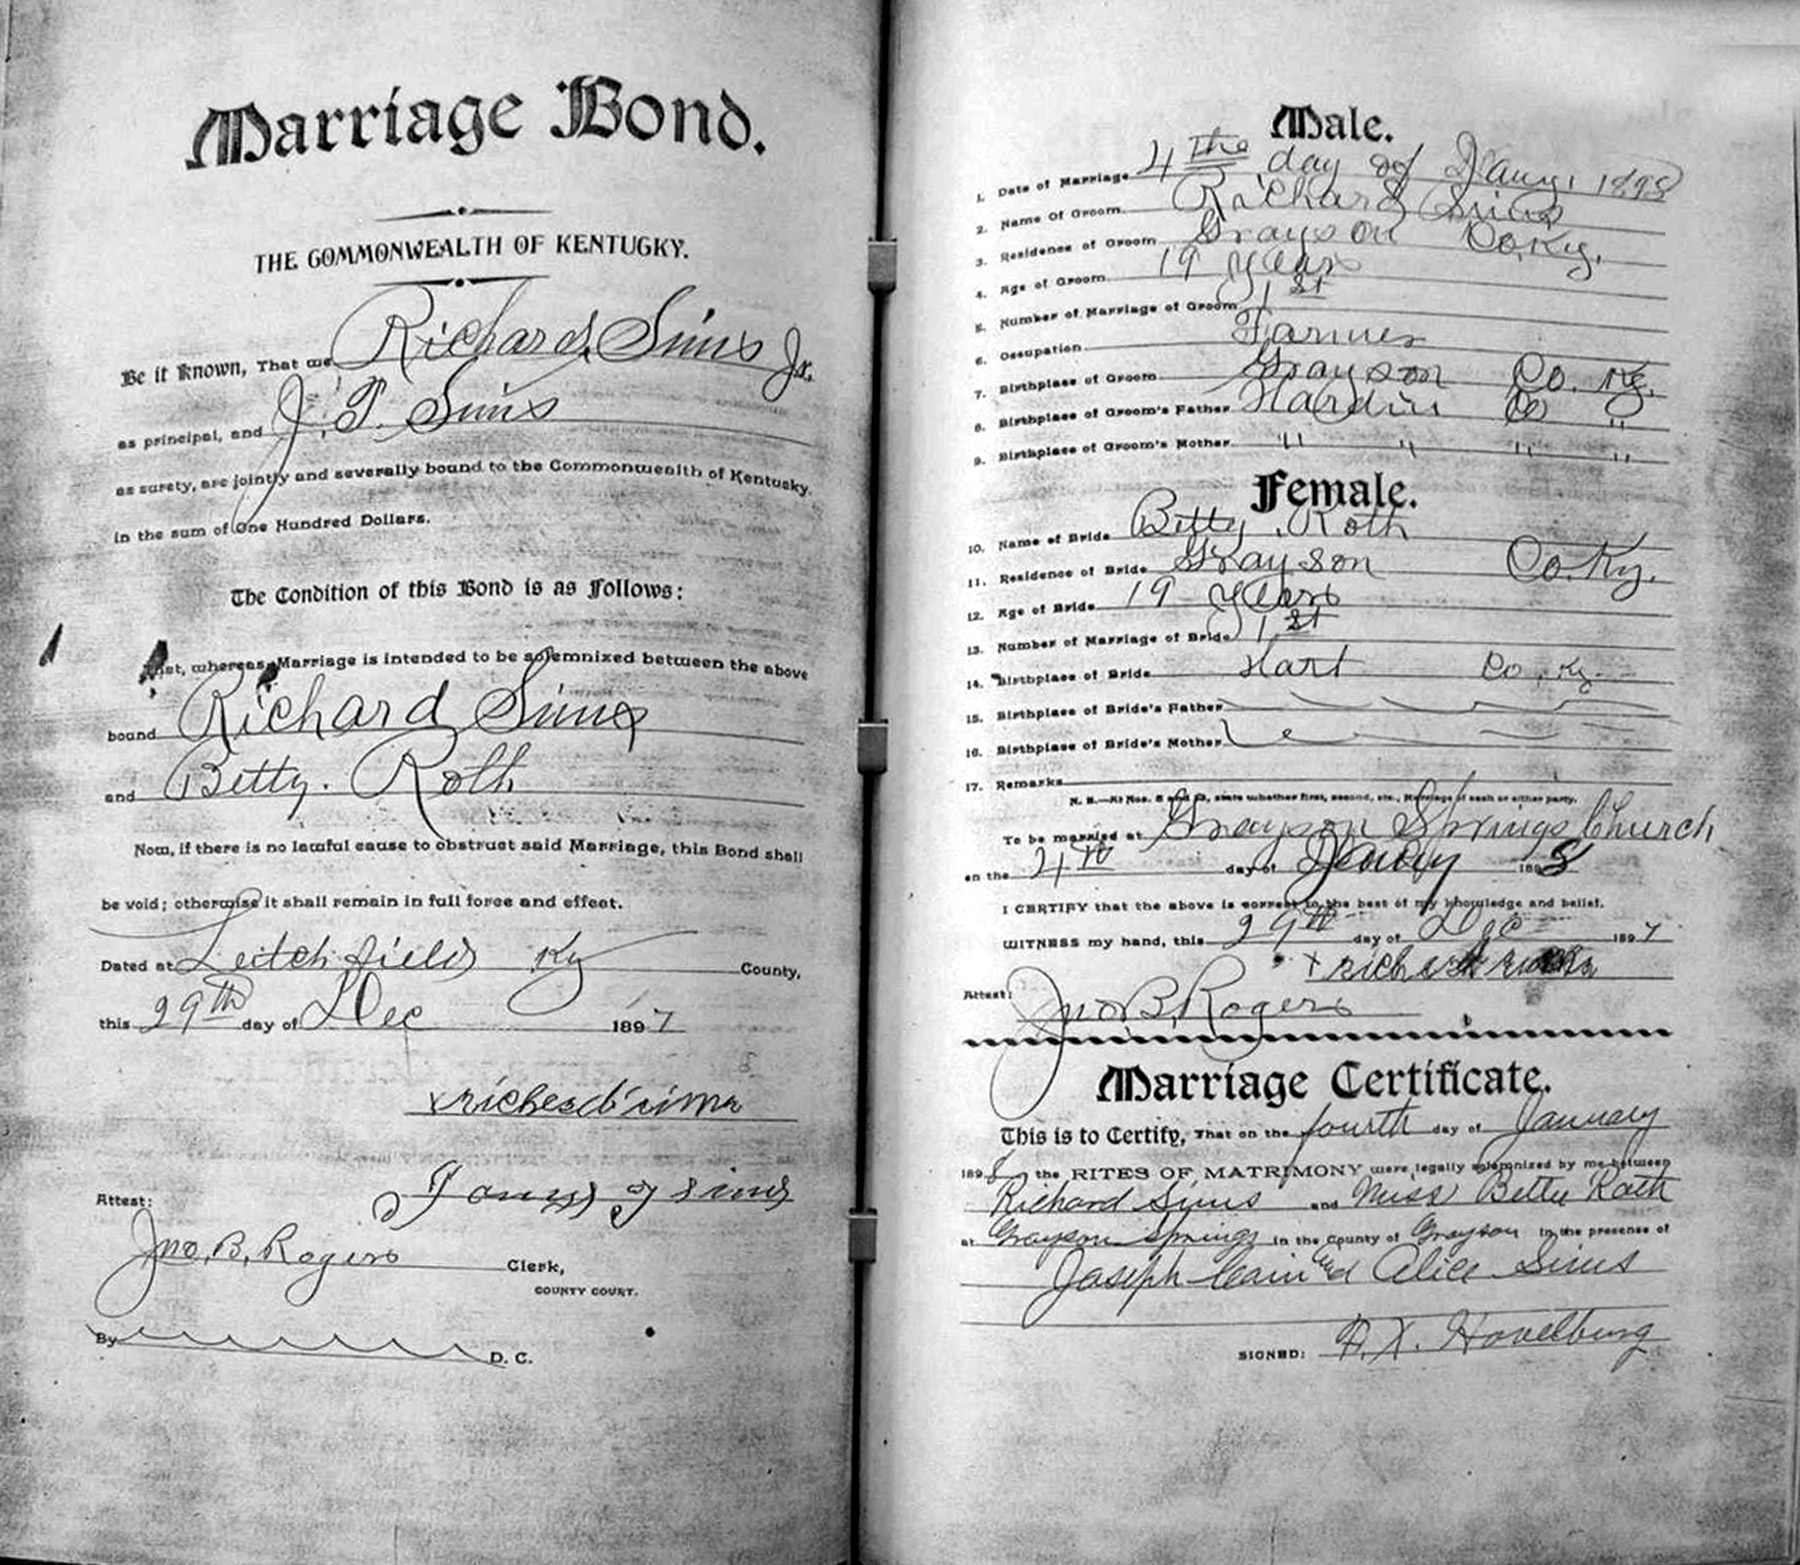 Marriage Bond.
THE COMMONWEALTH OF KENTUCKY.
Be it Known, That we Richard Sims Jr.
as principal, and J. T. Sims
as surety, are jointly and severally bound to the Commonwealth of Kentucky,
in the sum of One Hundred Dollars.
The Condition of this Bond is as Follows:
That, whereas, Marriage is intended to be solemnized between the above
bound Richard Sims
and Betty. Roth
Now, if there is no lawful cause to obstruct said Marriage, this Bond shall
be void; otherwise it shall remain in full force and effect.
Dated at Leitchfield Ky County,
this 29th day of Dec 1897
x
Sims
Attest:
Jno. B. Rogers Clerk,
COUNTY COURT.
By D. C.
Male.
1. Date of Marriage 4 the day of Jany. 1898
2. Name Of Groom Richard Sims
3. Residence of Groom Grayson Co. Ky.
4. Age of Groom 19 Years
5. Number of Marriage of Groom 1st
6. Occupation Farmer
7. Birthplace of Groom Grayson Co. Ky.
8. Birthplace of Groom's Father Hardin Co "
9. Birthplace of Groom's Mother " " " "
Female.
10. Name of Bride Betty. Roth
11. Residence of Bride Grayson Co. Ky.
12. Age of Bride 19 Years
13. Number of Marriage of Bride 1st
14. Birthplace of Bride Hart Co. Ky.
15. Birthplace of Bride's Father
16. Birthplace of Bride's Mother
17. Remarks
N. B.—At Nos. 5 and 13, state whether first, second, etc., Marriage of each or either party.
To be married at Grayson Springs Church
on the 4th day of Jany 1898
I CERTIFY that the above is correct to the best of my knowledge and belief.
WITNESS my hand, this 29th day of Dec 1897
x
Attest: Jno B. Rogers
Marriage Certificate.
This is to Certify, That on the fourth day of January
1898 the RITES OF MATRIMONY were legally solemnized by me between
Richard Sims and Miss Bettie Roth
at Grayson Springs in the County of Grayson in the presence of
Joseph Cain and Alice Sims
SIGNED: